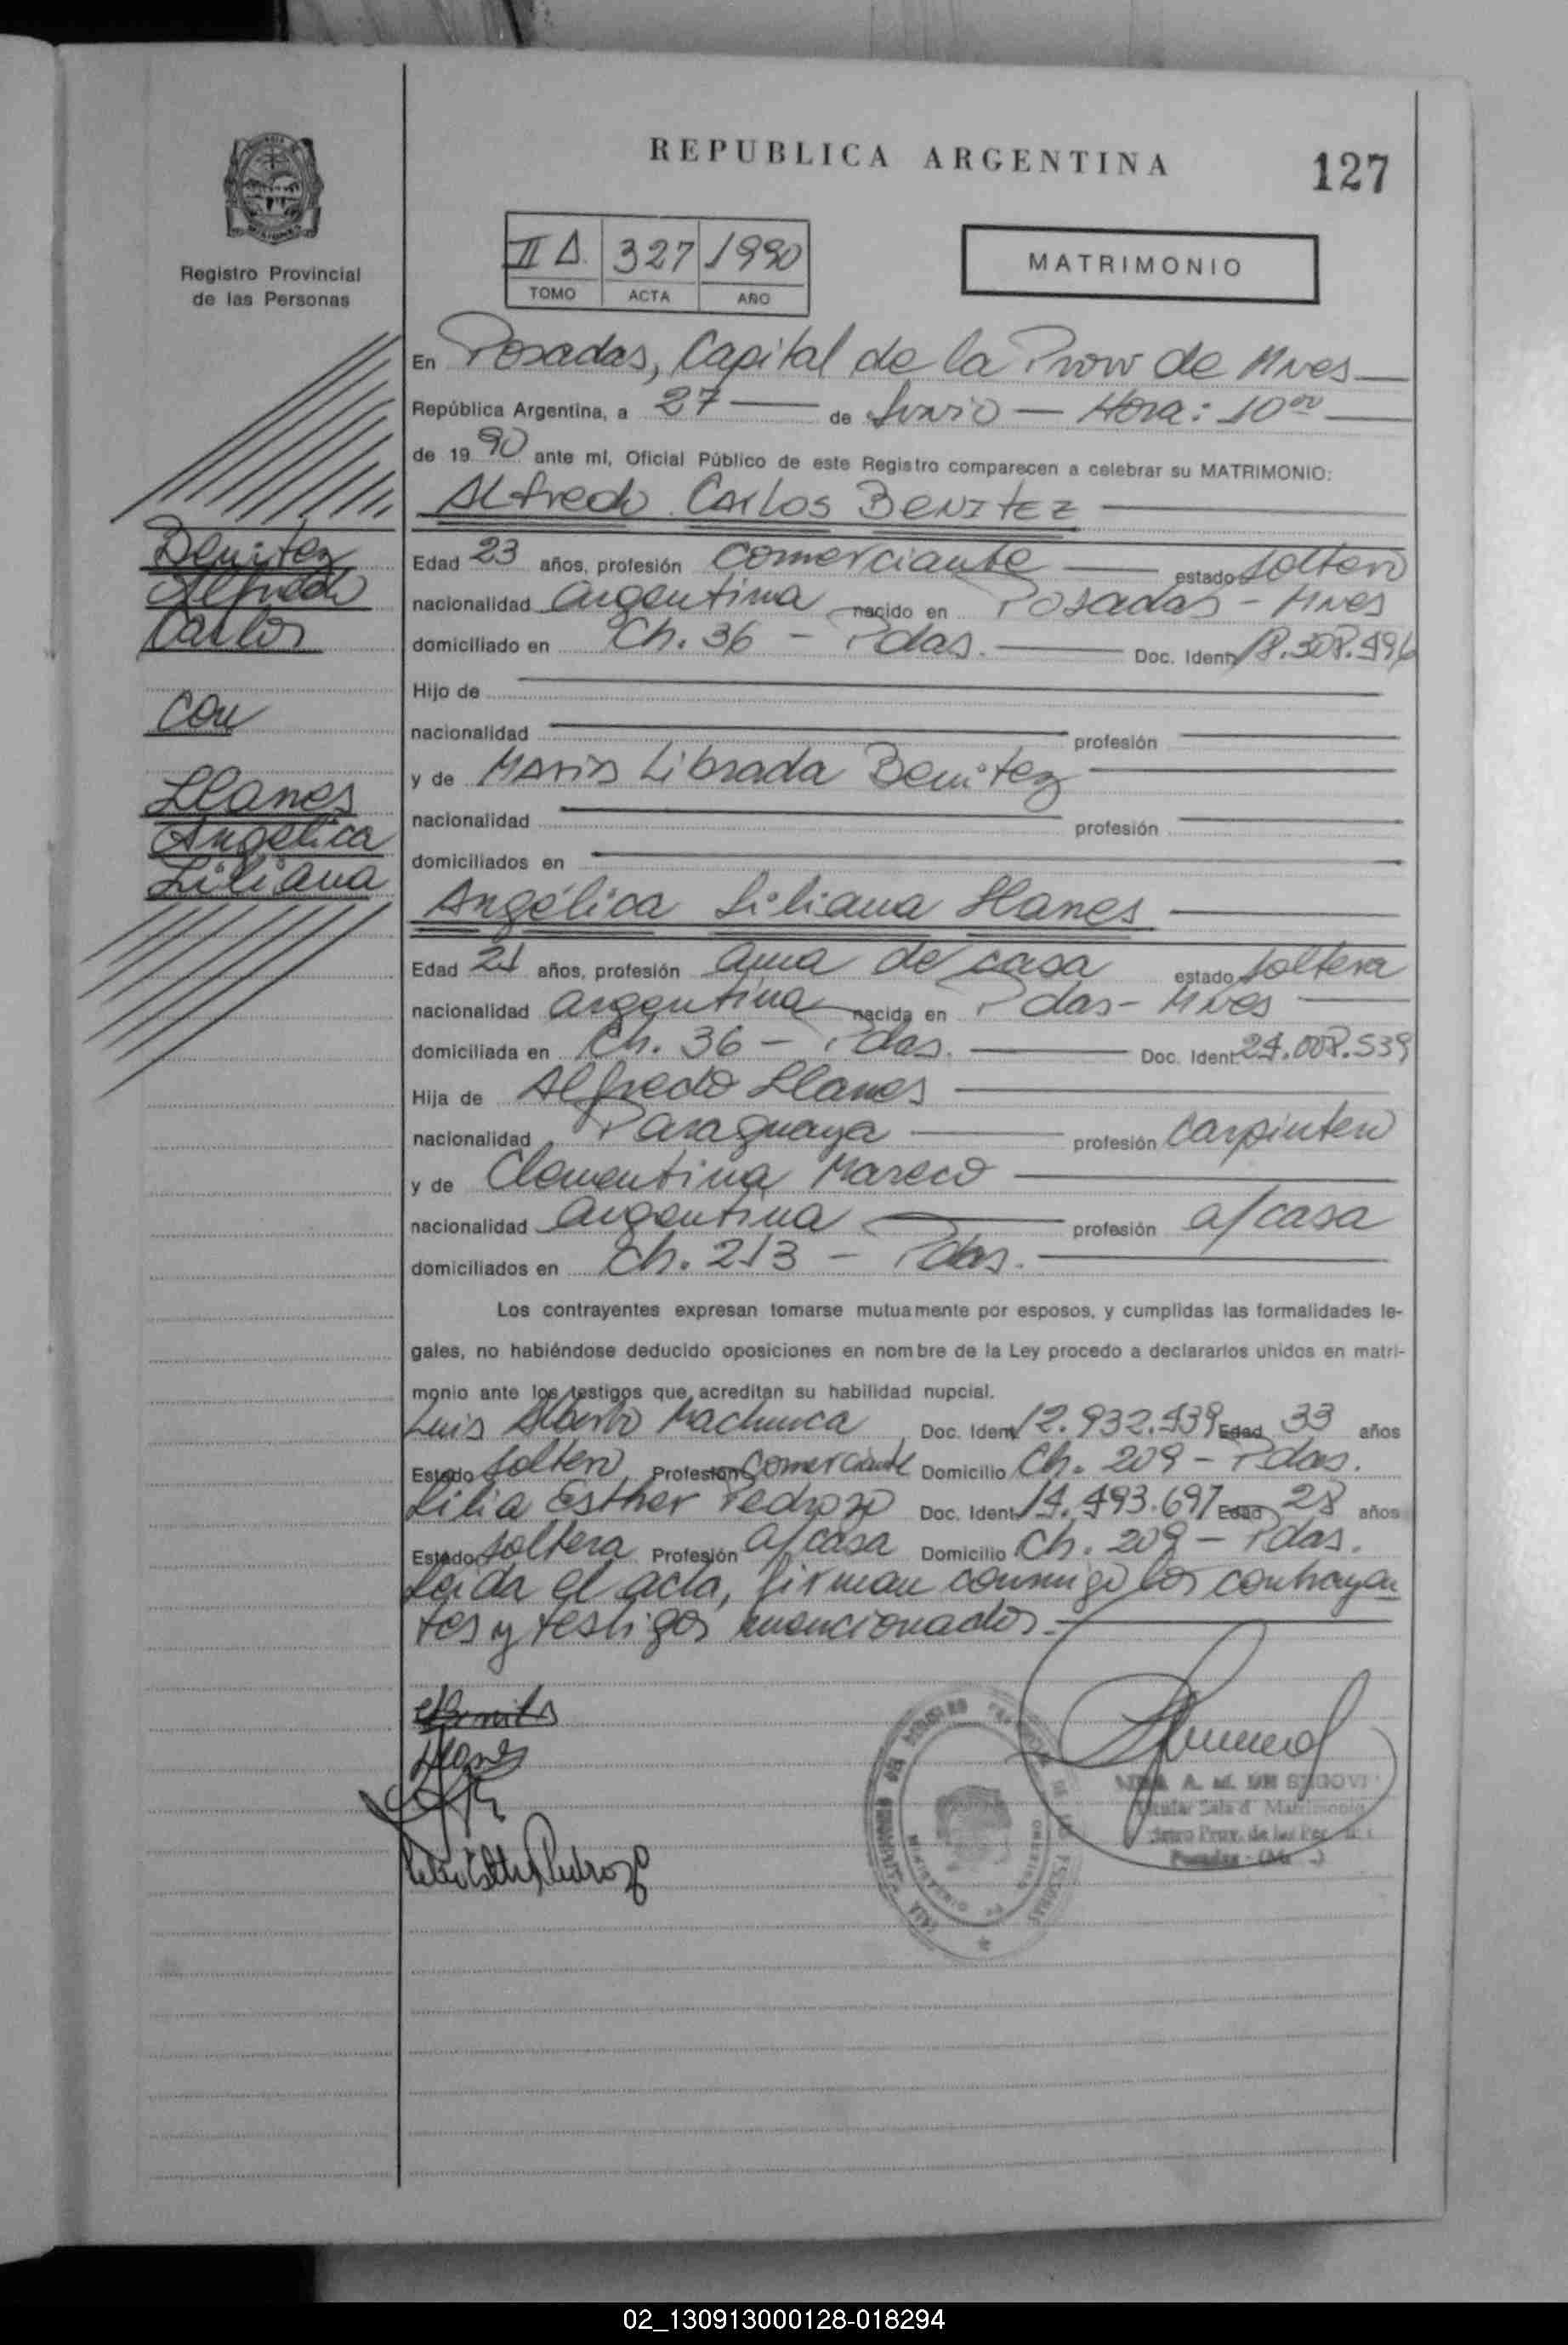 REPUBLICA ARGENTINA
127
Registro Provincial
de las Personas
II Δ. 327 1990
TOMO ACTA AÑO
MATRIMONIO
En Posadas, Capital de la Prov de Mnes
República Argentina, a 27 de Junio - Hora: 10ºº
de 1990 ante mí, Oficial Público de este Registro comparecen a celebrar su MATRIMONIO:
Alfredo Carlos BENITEZ
Benitez
Alfredo
Carlos
con
Llanes
Angelica
Liliana
Edad 23 años, profesión comerciante estado soltero
nacionalidad argentina nacido en Posadas - Mnes
domiciliado en Ch. 36 - Pdas. Doc. Ident. 18.308.496
Hijo de
nacionalidad profesión
y de Maria Librada Benitez
nacionalidad profesión
domiciliados en
Angélica Liliana Llanes
Edad 21 años, profesión ama de casa estado soltera
nacionalidad argentina nacida en Pdas - Mnes
domiciliada en Ch. 36 - Pdas. Doc. Ident. 24.008.539
Hija de Alfredo Llanes
nacionalidad Paraguaya profesión carpintero
y de Clementina Mareco
nacionalidad argentina profesión a/casa
domiciliados en Ch. 213 - Pdas.
Los contrayentes expresan tomarse mutuamente por esposos, y cumplidas las formalidades le-
gales, no habiéndose deducido oposiciones en nombre de la Ley procedo a declararlos unidos en matri-
monio ante los testigos que acreditan su habilidad nupcial.
Luis Alberto Machuca Doc. Ident. 12.932.439 Edad 33 años
Estado soltero Profesión comerciante Domicilio Ch. 209 - Pdas.
Lilia Esther Pedrozo Doc. Ident. 14.493.697 Edad 28 años
Estado soltera Profesión a/casa Domicilio Ch. 209 - Pdas.
Leida el acta, firman conmigo los contrayen
tes y testigos mencionados.-
Llanes
A. M. DE SEGOVI
Titular Sala d Matrimonio
Prov. de las Per
Posadas - (M
02_130913000128-018294